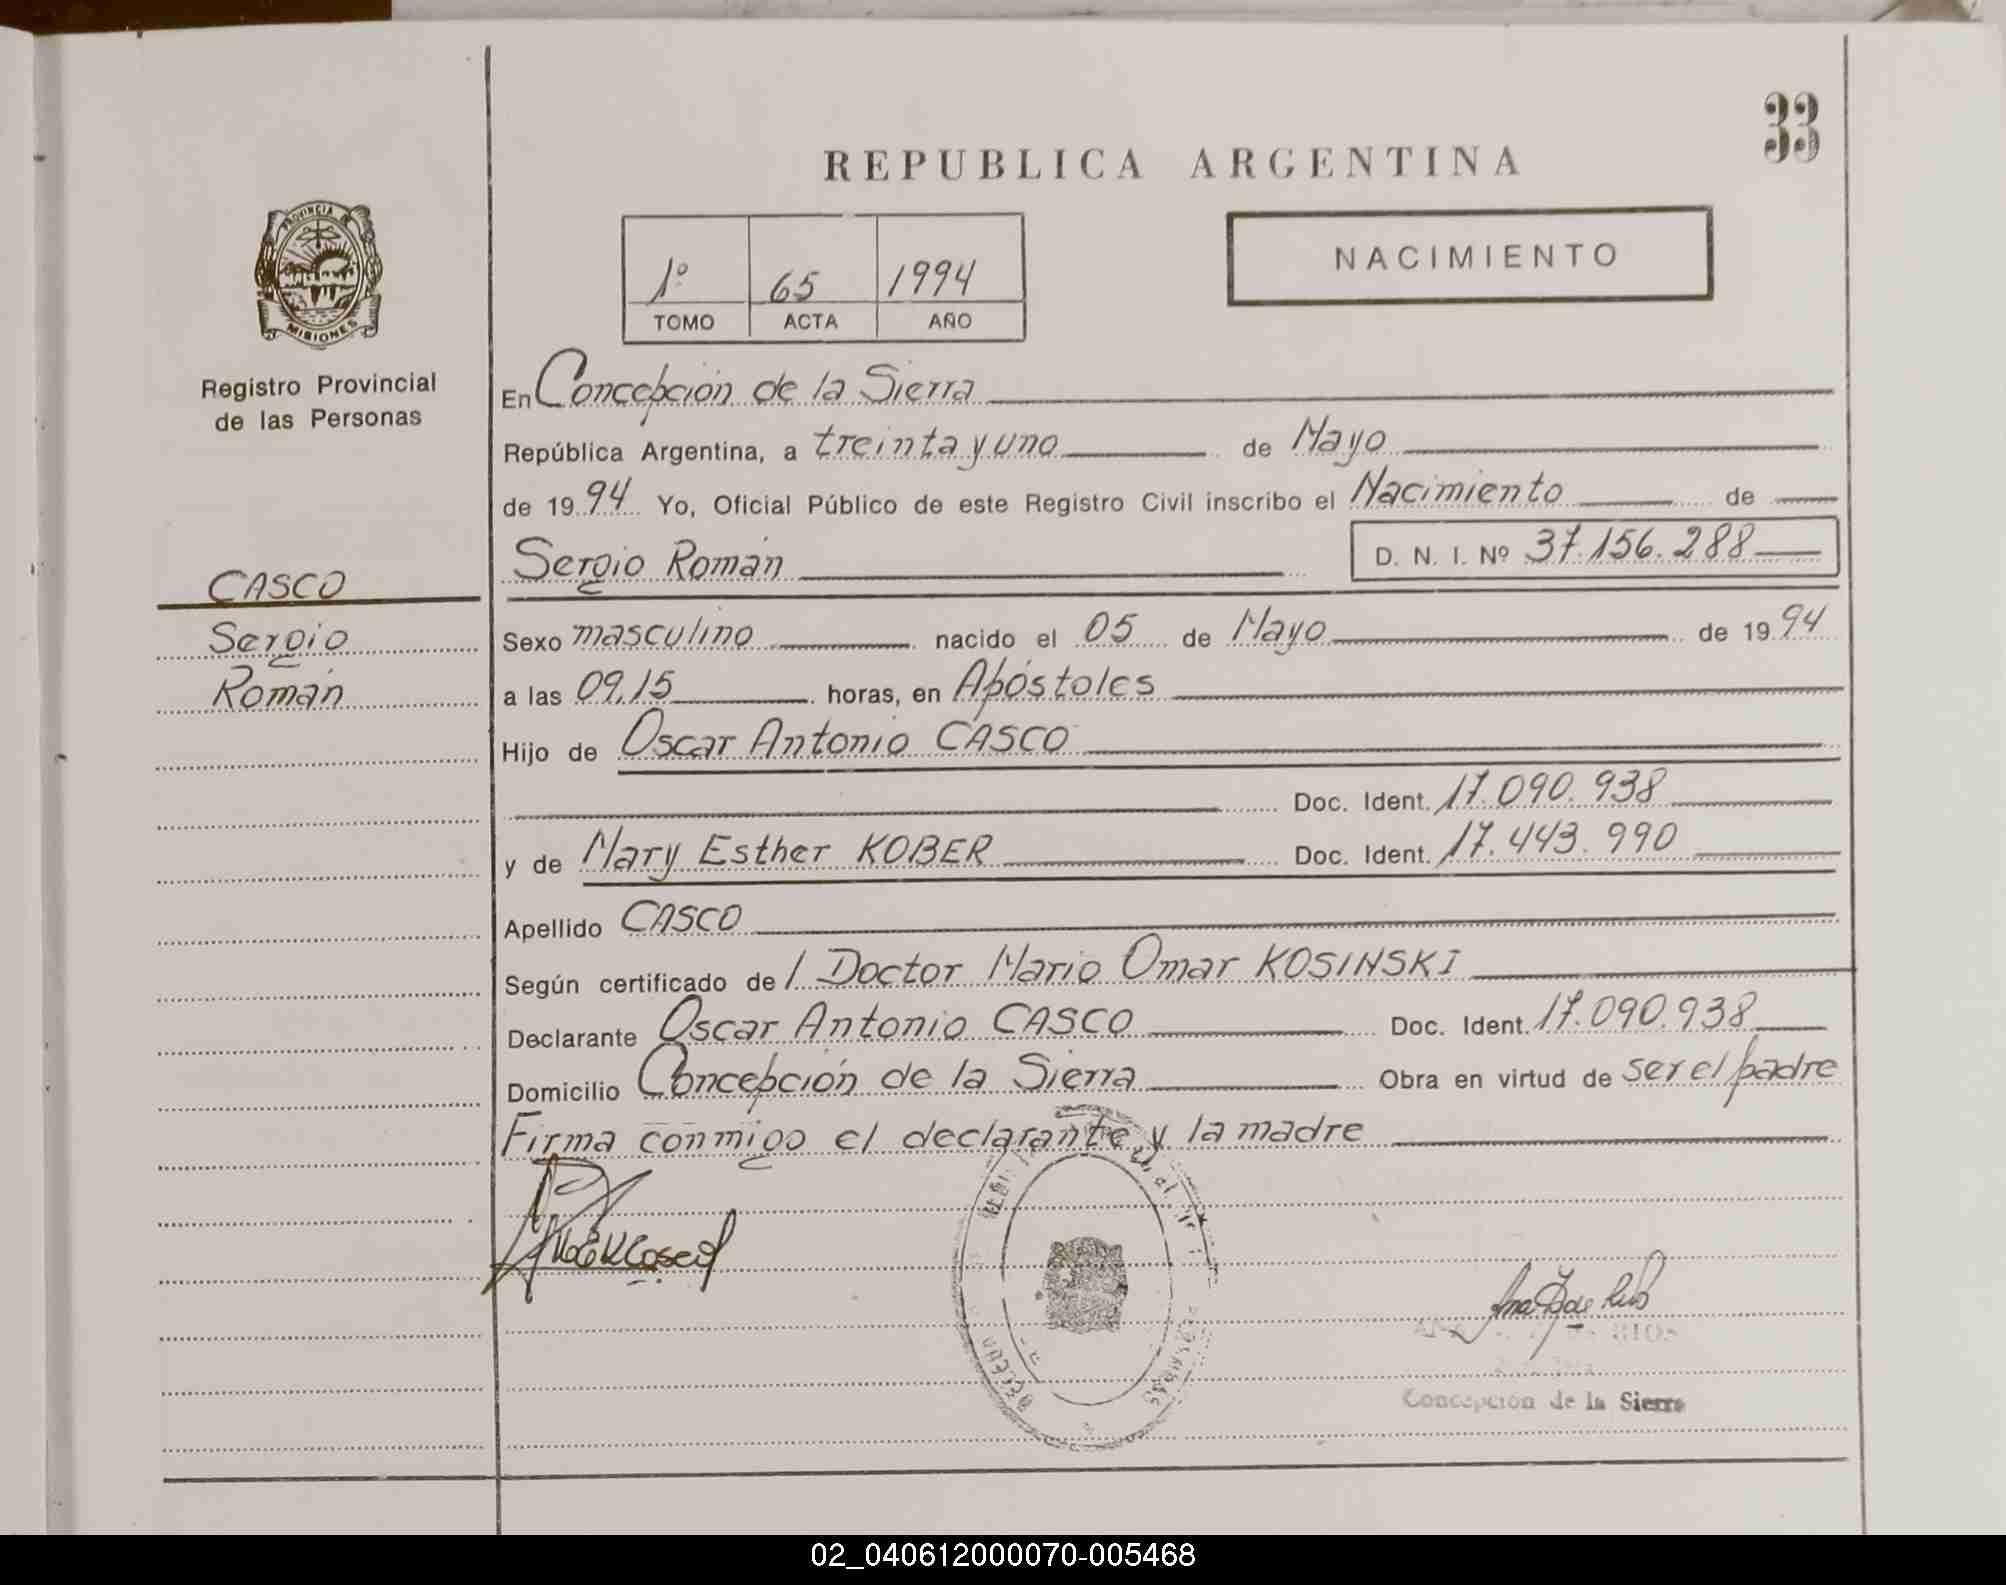 33
REPUBLICA ARGENTINA
PROVINCIA DE
MISIONES
Registro Provincial
de las Personas
1º 65 1994
TOMO ACTA AÑO
NACIMIENTO
En Concepción de la Sierra
República Argentina, a treinta y uno de Mayo
de 1994 Yo, Oficial Público de este Registro Civil inscribo el Nacimiento de
Sergio Román D. N. I. Nº 37.156.288
CASCO
Sergio
Román
Sexo masculino nacido el 05 de Mayo de 1994
a las 09,15 horas, en Apóstoles
Hijo de Oscar Antonio CASCO
Doc. Ident. 17.090.938
y de Mary Esther KOBER Doc. Ident. 17.443.990
Apellido CASCO
Según certificado de l Doctor Mario Omar KOSINSKI
Declarante Oscar Antonio CASCO Doc. Ident. 17.090.938
Domicilio Concepción de la Sierra Obra en virtud de ser el padre
Firma conmigo el declarante y la madre
Concepción de la Sierra
02_040612000070-005468